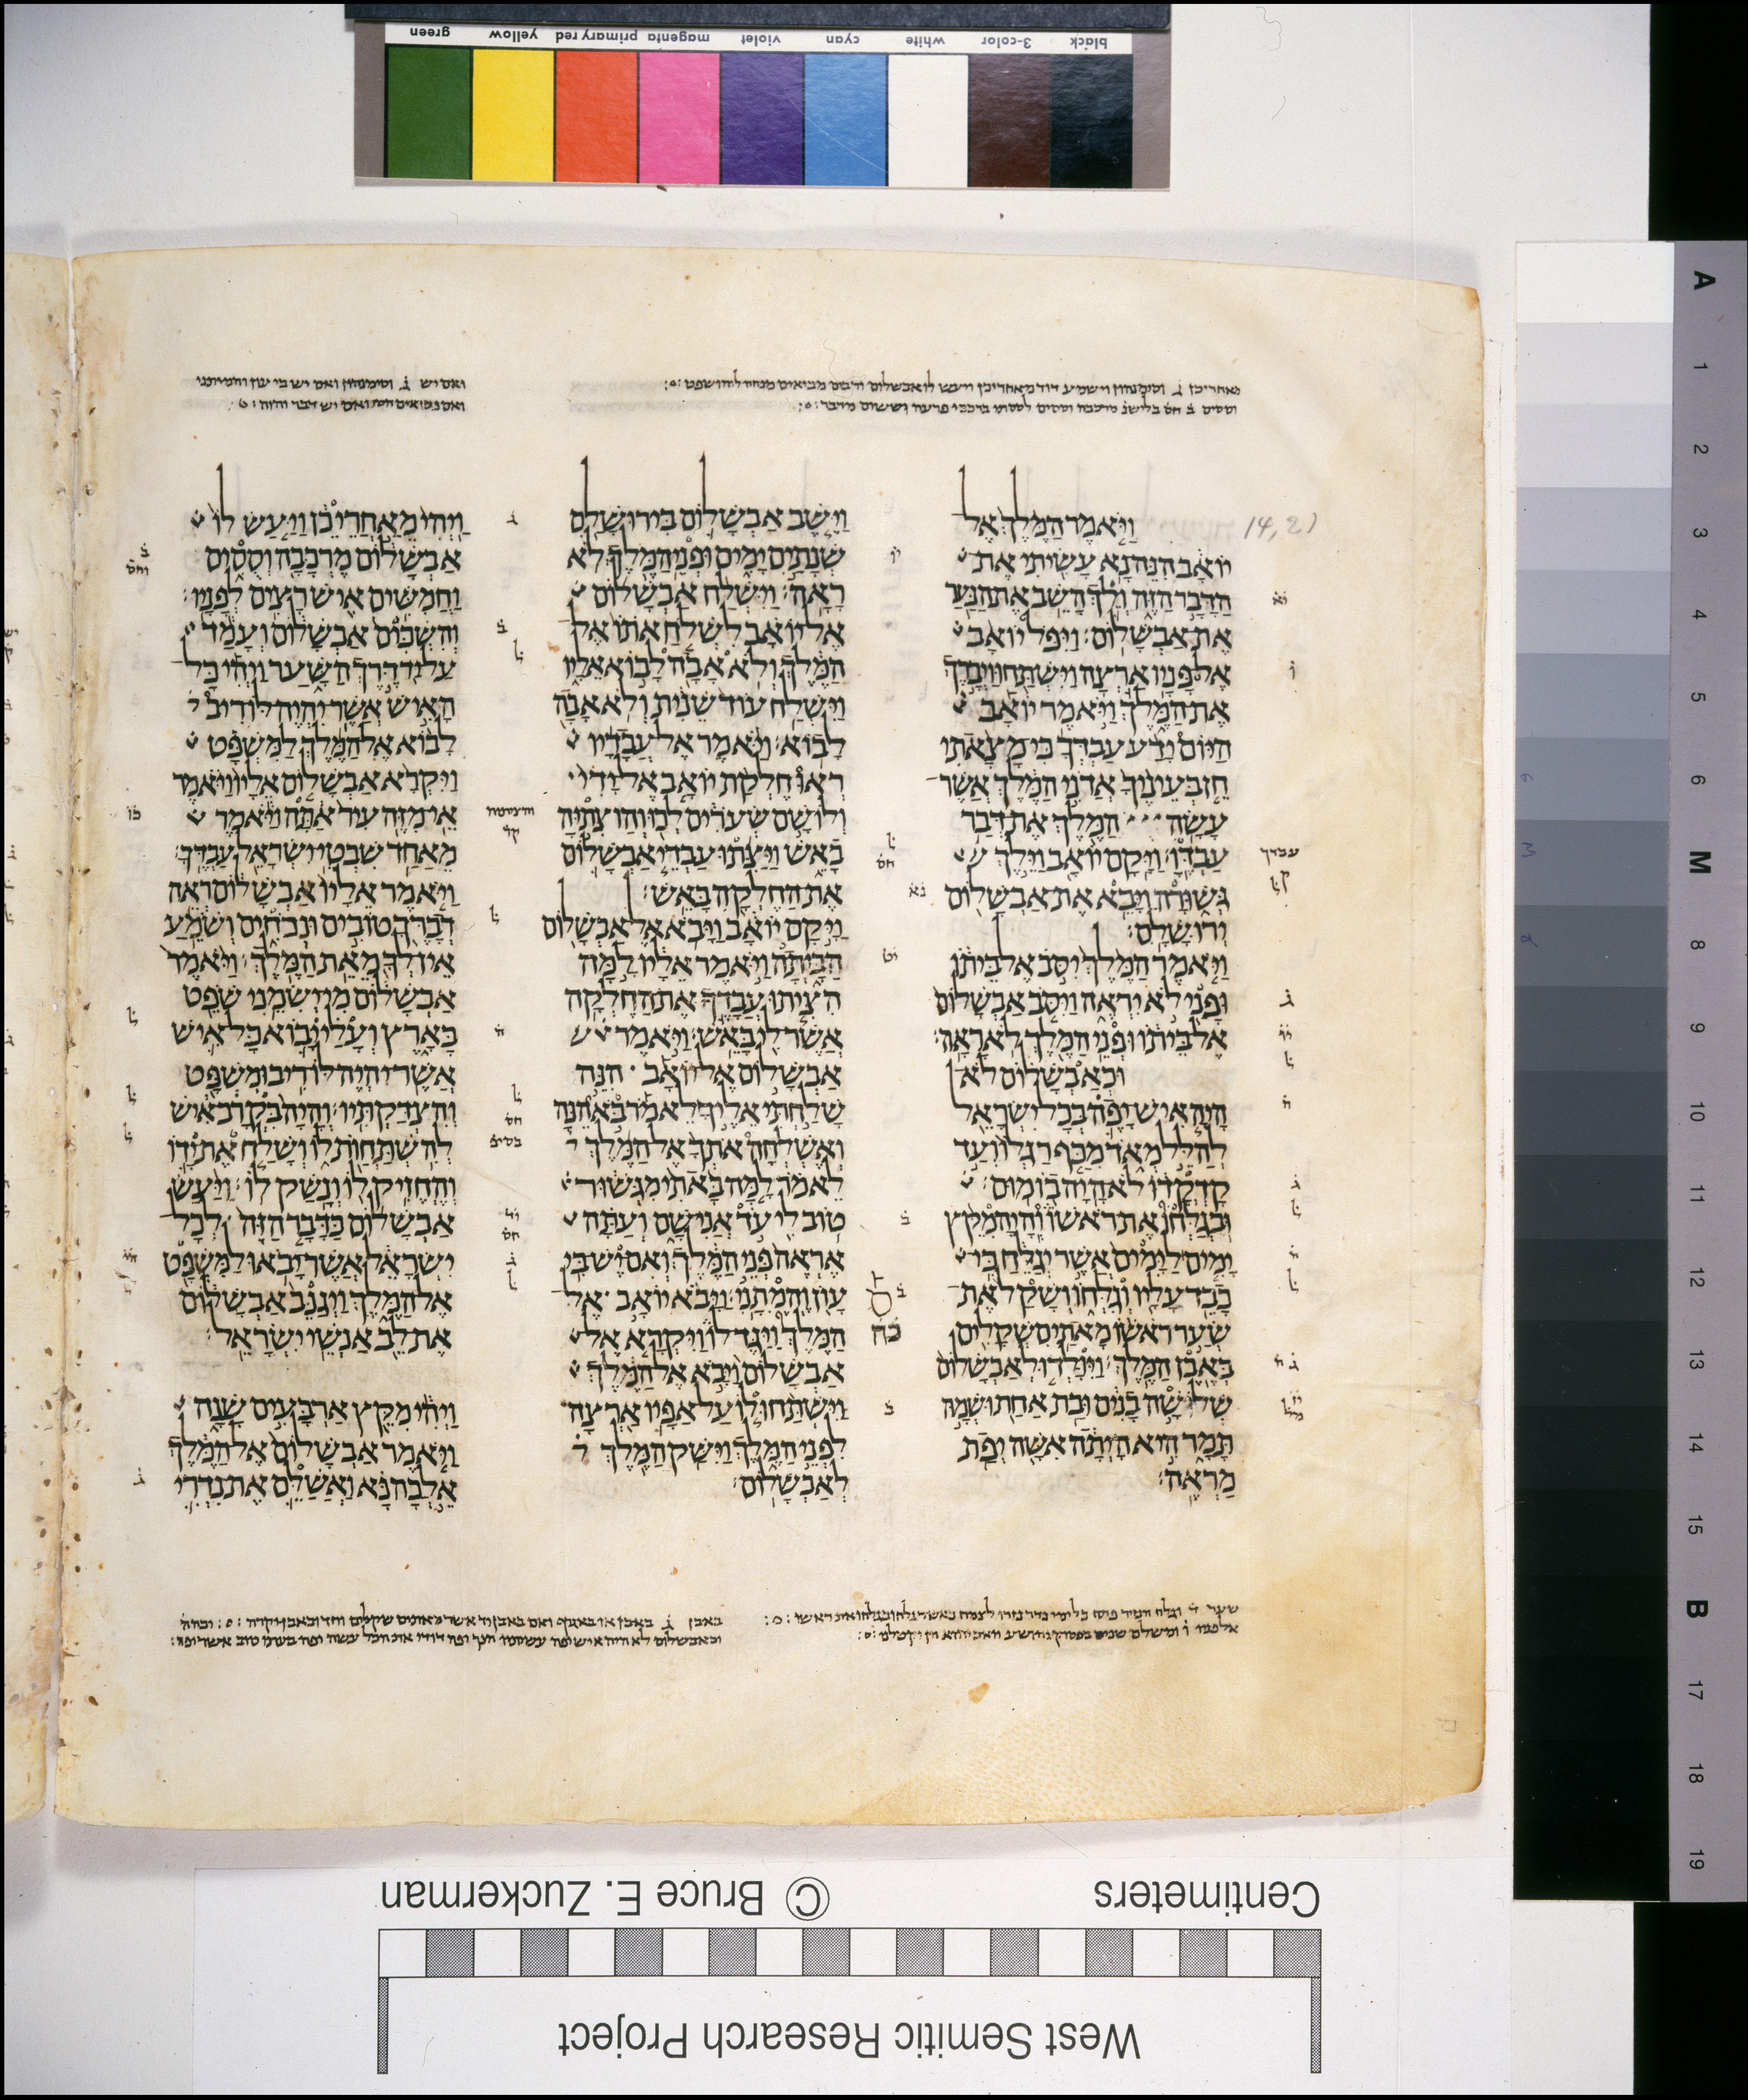 green yellow primary red magenta violet cyan white 3-color black
מאחרי כן ג וסימנהון וישמע דוד מאחרי כן ויעש לו אבשלום
ואם יש ג וסימנהון ואם יש בי עון והמיתני
14,21
וַיֹּאמֶר הַמֶּלֶךְ אֶל
יוֹאָב הִנֵּה נָא עָשִׂיתִי אֶת
הַדָּבָר הַזֶּה וְלֵךְ הָשֵׁב אֶת הַנַּעַר
אֶת אַבְשָׁלוֹם׃ וַיִּפֹּל יוֹאָב
אֶל פָּנָיו אַרְצָה וַיִּשְׁתַּחוּ וַיְבָרֶךְ
אֶת הַמֶּלֶךְ וַיֹּאמֶר יוֹאָב
הַיּוֹם יָדַע עַבְדְּךָ כִּי מָצָאתִי
חֵן בְּעֵינֶיךָ אֲדֹנִי הַמֶּלֶךְ אֲשֶׁר
עָשָׂה הַמֶּלֶךְ אֶת דְּבַר
עַבְדֶּוֹ׃ וַיָּקָם יוֹאָב וַיֵּלֶךְ
גְּשׁוּרָה וַיָּבֵא אֶת אַבְשָׁלוֹם
יְרוּשָׁלִָם׃
וַיֹּאמֶר הַמֶּלֶךְ יִסֹּב אֶל בֵּיתוֹ
וּפָנַי לֹא יִרְאֶה וַיִּסֹּב אַבְשָׁלוֹם
אֶל בֵּיתוֹ וּפְנֵי הַמֶּלֶךְ לֹא רָאָה׃
וּכְאַבְשָׁלוֹם לֹא
הָיָה אִישׁ יָפֶה בְּכָל יִשְׂרָאֵל
לְהַלֵּל מְאֹד מִכַּף רַגְלוֹ וְעַד
קָדְקֳדוֹ לֹא הָיָה בוֹ מוּם׃
וּבְגַלְּחוֹ אֶת רֹאשׁוֹ וְהָיָה מִקֵּץ
יָמִים לַיָּמִים אֲשֶׁר יְגַלֵּחַ כִּי
כָבֵד עָלָיו וְגִלְּחוֹ וְשָׁקַל אֶת
שְׂעַר רֹאשׁוֹ מָאתַיִם שְׁקָלִים
בְּאֶבֶן הַמֶּלֶךְ׃ וַיִּוָּלְדוּ לְאַבְשָׁלוֹם
שְׁלוֹשָׁה בָנִים וּבַת אַחַת וּשְׁמָהּ
תָּמָר הִיא הָיְתָה אִשָּׁה יְפַת
מַרְאֶה׃
וַיֵּשֶׁב אַבְשָׁלוֹם בִּירוּשָׁלִַם
שְׁנָתַיִם יָמִים וּפְנֵי הַמֶּלֶךְ לֹא
רָאָה׃ וַיִּשְׁלַח אַבְשָׁלוֹם
אֶל יוֹאָב לִשְׁלֹחַ אֹתוֹ אֶל
הַמֶּלֶךְ וְלֹא אָבָה לָבוֹא אֵלָיו
וַיִּשְׁלַח עוֹד שֵׁנִית וְלֹא אָבָה
לָבוֹא׃ וַיֹּאמֶר אֶל עֲבָדָיו
רְאוּ חֶלְקַת יוֹאָב אֶל יָדִי
וְלוֹ שָׁם שְׂעֹרִים לְכוּ וְהוֹצִתִּיהָ
בָאֵשׁ וַיַּצִּתוּ עַבְדֵי אַבְשָׁלוֹם
אֶת הַחֶלְקָה בָּאֵשׁ׃
וַיָּקָם יוֹאָב וַיָּבֹא אֶל אַבְשָׁלוֹם
הַבָּיְתָה וַיֹּאמֶר אֵלָיו לָמָּה
הִצִּיתוּ עֲבָדֶךָ אֶת הַחֶלְקָה
אֲשֶׁר לִי בָּאֵשׁ׃ וַיֹּאמֶר
אַבְשָׁלוֹם אֶל יוֹאָב הִנֵּה
שָׁלַחְתִּי אֵלֶיךָ לֵאמֹר בֹּא הֵנָּה
וְאֶשְׁלְחָה אֹתְךָ אֶל הַמֶּלֶךְ
לֵאמֹר לָמָּה בָּאתִי מִגְּשׁוּר
טוֹב לִי עֹד אֲנִי שָׁם וְעַתָּה
אֶרְאֶה פְּנֵי הַמֶּלֶךְ וְאִם יֶשׁ בִּי
עָוֹן וֶהֱמִתָנִי׃ וַיָּבֹא יוֹאָב אֶל
הַמֶּלֶךְ וַיַּגֶּד לוֹ וַיִּקְרָא אֶל
אַבְשָׁלוֹם וַיָּבֹא אֶל הַמֶּלֶךְ
וַיִּשְׁתַּחוּ לוֹ עַל אַפָּיו אַרְצָה
לִפְנֵי הַמֶּלֶךְ וַיִּשַּׁק הַמֶּלֶךְ
לְאַבְשָׁלוֹם׃
וַיְהִי מֵאַחֲרֵי כֵן וַיַּעַשׂ לוֹ
אַבְשָׁלוֹם מֶרְכָּבָה וְסֻסִים
וַחֲמִשִּׁים אִישׁ רָצִים לְפָנָיו׃
וְהִשְׁכִּים אַבְשָׁלוֹם וְעָמַד
עַל יַד דֶּרֶךְ הַשָּׁעַר וַיְהִי כָּל
הָאִישׁ אֲשֶׁר יִהְיֶה לּוֹ רִיב
לָבוֹא אֶל הַמֶּלֶךְ לַמִּשְׁפָּט
וַיִּקְרָא אַבְשָׁלוֹם אֵלָיו וַיֹּאמֶר
אֵי מִזֶּה עִיר אַתָּה וַיֹּאמֶר
מֵאַחַד שִׁבְטֵי יִשְׂרָאֵל עַבְדֶּךָ׃
וַיֹּאמֶר אֵלָיו אַבְשָׁלוֹם רְאֵה
דְבָרֶךָ טוֹבִים וּנְכֹחִים וְשֹׁמֵעַ
אֵין לְךָ מֵאֵת הַמֶּלֶךְ׃ וַיֹּאמֶר
אַבְשָׁלוֹם מִי יְשִׂמֵנִי שֹׁפֵט
בָּאָרֶץ וְעָלַי יָבוֹא כָּל אִישׁ
אֲשֶׁר יִהְיֶה לּוֹ רִיב וּמִשְׁפָּט
וְהִצְדַּקְתִּיו׃ וְהָיָה בִּקְרָב אִישׁ
לְהִשְׁתַּחֲוֹת לוֹ וְשָׁלַח אֶת יָדוֹ
וְהֶחֱזִיק לוֹ וְנָשַׁק לוֹ׃ וַיַּעַשׂ
אַבְשָׁלוֹם כַּדָּבָר הַזֶּה לְכָל
יִשְׂרָאֵל אֲשֶׁר יָבֹאוּ לַמִּשְׁפָּט
אֶל הַמֶּלֶךְ וַיְגַנֵּב אַבְשָׁלוֹם
אֶת לֵב אַנְשֵׁי יִשְׂרָאֵל׃
וַיְהִי מִקֵּץ אַרְבָּעִים שָׁנָה
וַיֹּאמֶר אַבְשָׁלוֹם אֶל הַמֶּלֶךְ
אֵלֲכָה נָּא וַאֲשַׁלֵּם אֶת נִדְרִי
עבדך
כח
Centimeters © Bruce E. Zuckerman
West Semitic Research Project
A 1 2 3 4 5 6 M 8 9 10 11 12 13 14 15 B 17 18 19